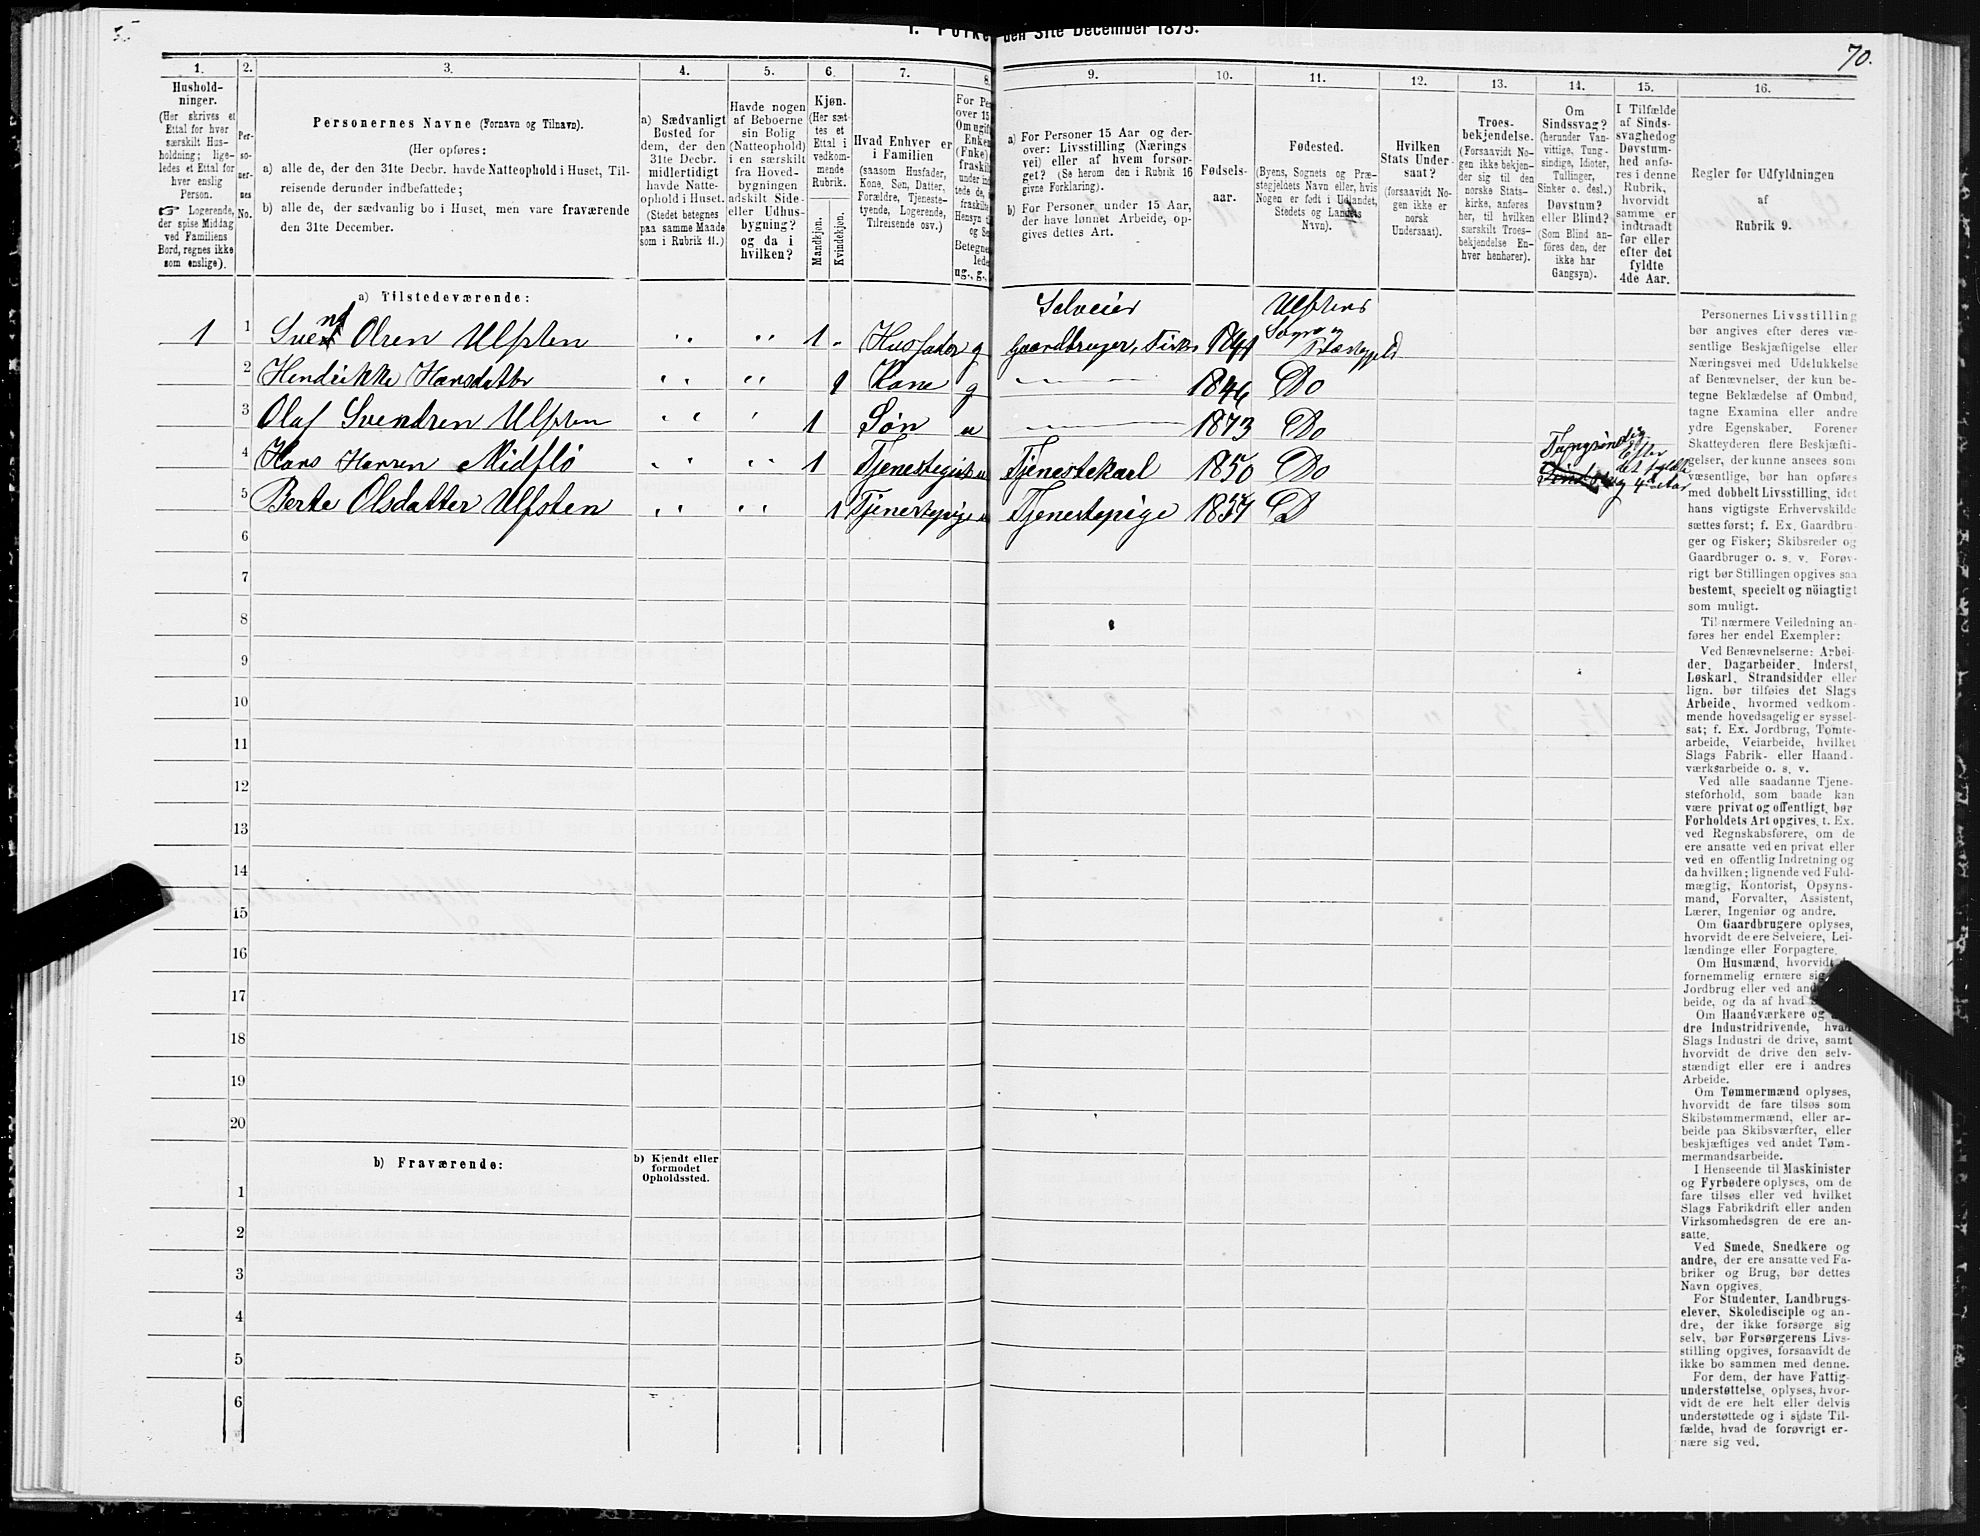 1. Folke
den 31te December 1875.
70.
1. 2. 3. 4. 5. 6. 7. 8. 9. 10. 11. 12. 13. 14. 15. 16.
Hushold-
ninger.
(Her skrives et
Ettal for hver
særskilt Hus-
holdning; lige-
ledes et Ettal for
hver enslig
Person.
☞ Logerende,
der spise Middag
ved Familiens
Bord, regnes ikke
som enslige).
Per-
so-
ner-
nes
No.
Personernes Navne (Fornavn og Tilnavn).
(Her opføres:
a) alle de, der den 31te Decbr. havde Natteophold i Huset, Til-
reisende derunder indbefattede;
b) alle de, der sædvanlig bo i Huset, men vare fraværende
den 31te December.
a) Sædvanligt
Bosted for
dem, der den
31te Decbr.
midlertidigt
havde Natte-
ophold i Huset.
(Stedet betegnes
paa samme Maade
som i Rubrik 11.)
Havde nogen
af Beboerne
sin Bolig
(Natteophold)
i en særskilt
fra Hoved-
bygningen
adskilt Side-
eller Udhus-
bygning?
og da i
hvilken?
Kjøn.
(Her sæt-
tes et
Ettal i
vedkom-
mende
Rubrik.
Mandkjøn.
Kvindekjøn.
Hvad Enhver er
i Familien
(saasom Husfader,
Kone, Søn, Datter,
Forældre, Tjeneste-
tyende, Logerende,
Tilreisende osv.)
For Pe
over 15
Om ugift
Enken
(Fnke)
fraskilt
under ind
tede de,
fraskilte
Hensyn ti
og Se
Betegne
lede
ug., g.,
a) For Personer 15 Aar og der-
over: Livsstilling (Nærings
vei) eller af hvem forsør-
get? (Se herom den i Rubrik 16
givne Forklaring).
b) For Personer under 15 Aar,
der have lønnet Arbeide, op-
gives dettes Art.
Fødsels-
aar.
Fødested.
(Byens, Sognets og Præ-
stegjeldets Navn eller, hvis
Nogen er født i Udlandet,
Stedets og Landets
Navn).
Hvilken
Stats Under-
saat?
(forsaavidt No-
gen ikke er
norsk
Undersaat).
Troes-
bekjendelse.
(Forsaavidt No-
gen ikke bekjen-
der sig til den
norske Stats-
kirke, anføres
her, til hvilken
særskilt Troes-
bekjendelse En-
hver henhører).
Om
Sindssvag?
(herunder Van-
vittige, Tung-
sindige, Idioter,
Tullinger,
Sinker o. desl.)
Døvstum?
eller Blind?
(Som Blind an-
føres den, der
ikke har
Gangsyn).
I Tilfælde
af Sinds-
svaghed og
Døvstum-
hed anfø-
res i denne
Rubrik,
hvorvidt
samme er
indtraadt
før eller
efter det
fyldte
4de Aar.
Regler for Udfyldningen
af
Rubrik 9.
a) Tilstedeværende:
1 1 Svend Olsen Ulfsten " " " " 1 - Husfader g Selveier Gaardbruger, Fisker 1841 Ulfstens Sogn og Præstegjeld
2 Hendrikke Hansdatter " " " " 1 Kone g 1846 Do
3 Olaf Svendsen Ulfsten " " " 1 Søn u 1873 Do
4 Hans Hansen Midflø " " " " 1 Tjenestegut u Tjenestekarl 1850 Do Tungsindig Efter det fyldte 4de Aar
5 Berte Olsdatter Ulfsten " " " " 1 Tjenestepige u Tjenestepige 1857 D
6
7
8
9
10
11
12
13
14
15
16
17
18
19
20
b) Fraværende:
b) Kjendt eller
formodet
Opholdssted.
1
2
3
4
5
6
Personernes Livsstilling
bør angives efter deres væ-
sentlige Beskjæftigelse eller
Næringsvei med Udelukkelse
af Benævnelser, der kun be-
tegne Beklædelse af Ombud,
tagne Examina eller andre
ydre Egenskaber. Forener
Skatteyderen flere Beskjæfti-
gelser, der kunne ansees som
væsentlige, bør han opføres
med dobbelt Livsstilling, idet
hans vigtigste Erhvervskilde
sættes først; f. Ex. Gaardbru-
ger og Fisker; Skibsreder og
Gaardbruger o. s. v. Forøv-
rigt bør Stillingen opgives saa
bestemt, specielt og nöiagtigt
som muligt.
Til nærmere Veiledning an-
føres her endel Exempler:
Ved Benævnelserne: Arbei-
der, Dagarbeider, Inderst,
Løskarl, Strandsidder eller
lign. bør tilføies det Slags
Arbeide, hvormed vedkom-
mende hovedsagelig er syssel-
sat; f. Ex. Jordbrug, Tomte-
arbeide, Veiarbeide, hvilket
Slags Fabrik- eller Haand-
værksarbeide o. s. v.
Ved alle saadanne Tjene-
steforhold, som baade kan
være privat og offentligt, bør
Forholdets Art opgives, t. Ex.
ved Regnskabsførere, om de
ere ansatte ved en privat eller
ved en offentlig Indretning og
da hvilken; lignende ved Fuld-
mægtig, Kontorist, Opsyns-
mand, Forvalter, Assistent,
Lærer, Ingeniør og andre.
Om Gaardbrugere oplyses,
hvorvidt de ere Selveiere, Lei-
lændinge eller Forpagtere.
Om Husmænd, hvorvidt de
fornemmelig ernære sig
Jordbrug eller ved and
beide, og da af hvad
Om Haandværkere og
dre Industridrivende, hvad
Slags Industri de drive, samt
hvorvidt de drive den selv-
stændigt eller ere i andres
Arbeide.
Om Tømmermænd oplyses,
hvorvidt de fare tilsøs som
Skibstømmermænd, eller ar-
beide paa Skibsværfter, eller
beskjæftiges ved andet Tøm-
mermandsarbeide.
I Henseende til Maskinister
og Fyrbødere oplyses, om de
fare tilsøs eller ved hvilket
Slags Fabrikdrift eller anden
Virksomhedsgren de ere an-
satte.
Ved Smede, Snedkere og
andre, der ere ansatte ved Fa-
briker og Brug, bør dettes
Navn opgives.
For Studenter, Landbrugs-
elever, Skoledisciple og an-
dre, der ikke forsørge sig
selv, bør Forsørgerens Livs-
stilling opgives, forsaavidt de
ikke bo sammen med denne.
For dem, der have Fattig-
understøttelse, oplyses, hvor-
vidt de ere helt eller delvis
understøttede og i sidste Til-
fælde, hvad de forøvrigt er-
nære sig ved.